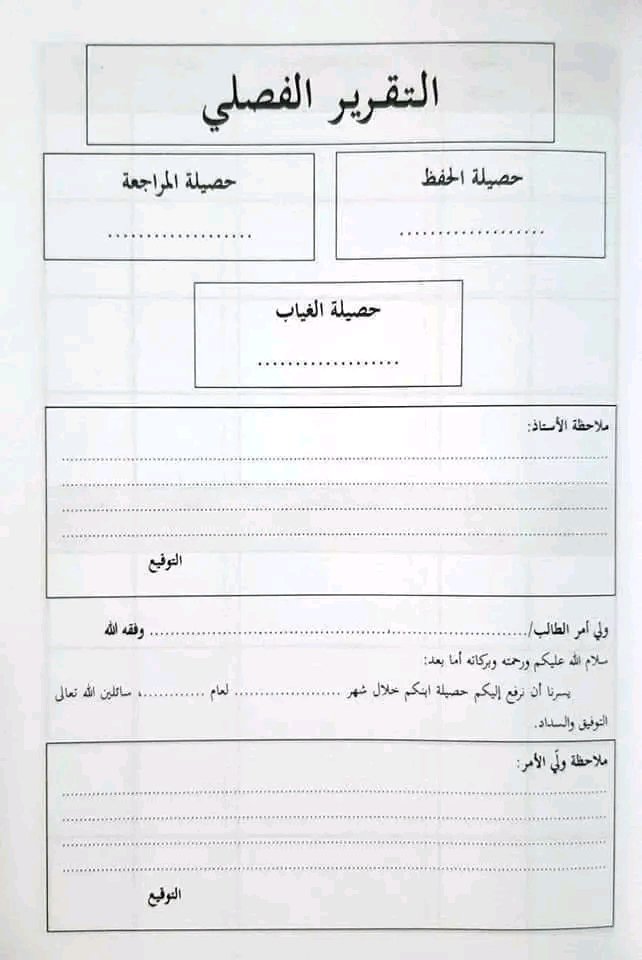 التقرير الفصلي
حصيلة الحفظ
...................
حصيلة المراجعة
...................
حصيلة الغياب
...................
ملاحظة الأستاذ:
التوقيع
ولي أمر الطالب/................................................................ وفقه الله
سلام الله عليكم ورحمته وبركاته أما بعد:
يسرنا أن نرفع إليكم حصيلة ابنكم خلال شهر ..................... لعام ............، سائلين الله تعالى
التوفيق والسداد.
ملاحظة وليّ الأمر:
التوقيع